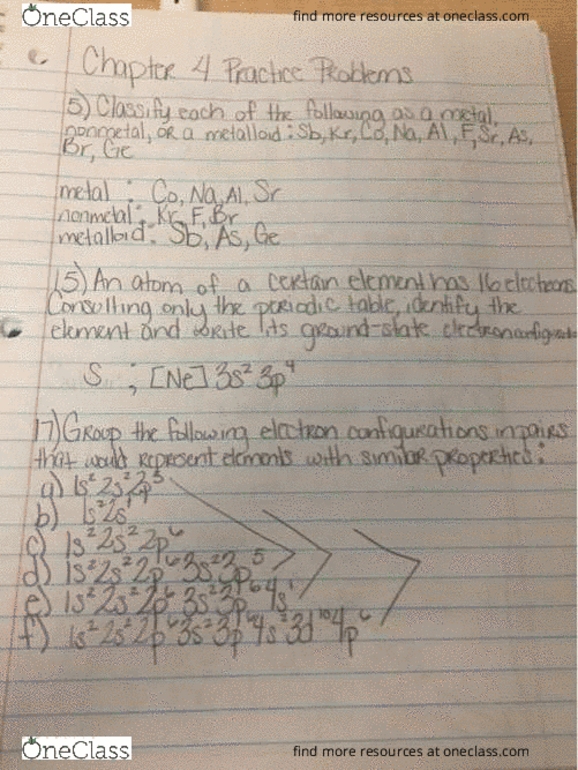 OneClass
find more resources at oneclass.com
Chapter 4 Practice Problems
5) Classify each of the following as a metal,
nonmetal, OR a metalloid: Sb, Kr, Co, Na, Al, F, Sr, As,
Br, Ge
metal : Co, Na, Al, Sr
nonmetal: Kr, F, Br
metalloid: Sb, As, Ge
15) An atom of a certain element has 16 electrons.
Consulting only the periodic table, identify the
element and write its ground-state electron
S ; [Ne] 3s² 3p⁴
17) Group the following electron configurations in pairs
that would represent elements with similar properties:
a) 1s² 2s² 2p⁵
b) 1s² 2s¹
c) 1s² 2s² 2p⁶
d) 1s² 2s² 2p⁶ 3s² 3p⁵
e) 1s² 2s² 2p⁶ 3s² 3p⁶ 4s¹
f) 1s² 2s² 2p⁶ 3s² 3p⁶ 4s² 3d¹⁰ 4p⁶
OneClass
find more resources at oneclass.com